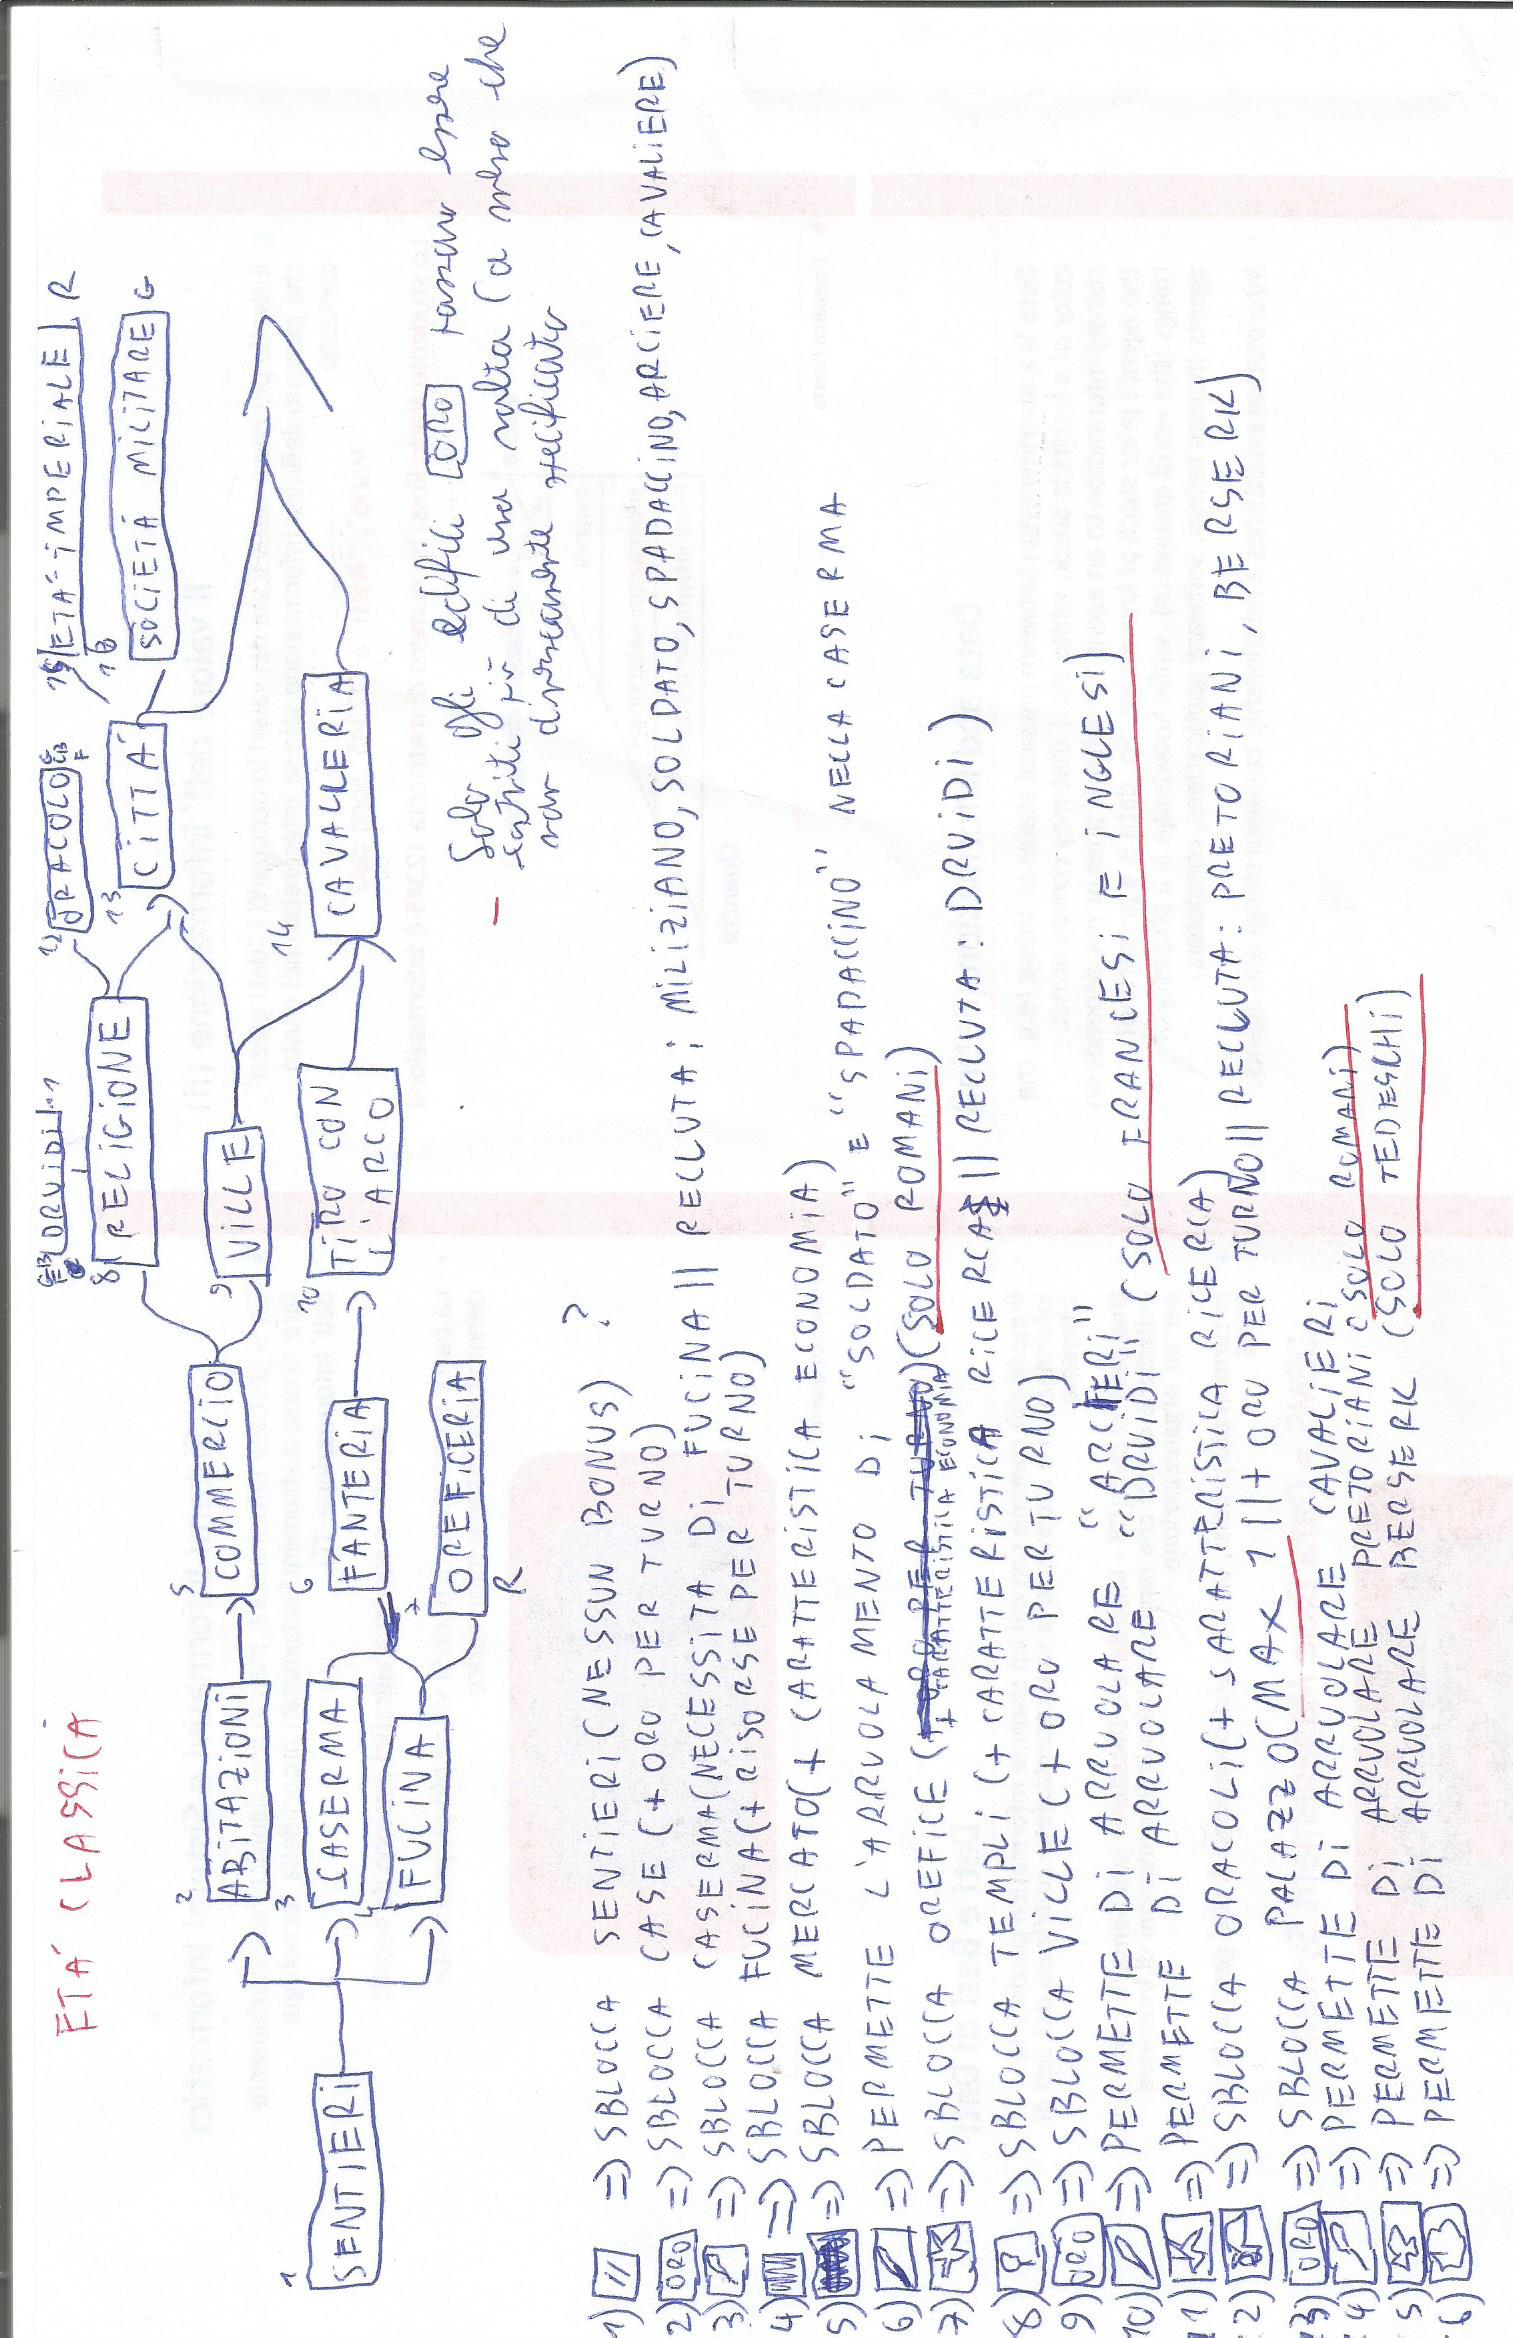 ETÀ CLASSICA
DRUIDI
11
12
ORACOLO
15
ETÀ IMPERIALE R
8
RELIGIONE
13
CITTÀ
16
SOCIETÀ MILITARE G
2
ABITAZIONI
5
COMMERCIO
9
VILLE
1
SENTIERI
3
CASERMA
6
FANTERIA
10
TIRO CON
L'ARCO
14
CAVALLERIA
4
FUCINA
7
OREFICERIA
R
- Solo gli edifici ORO possono essere
costruiti più di una volta (a meno che
non diversamente specificato
1) // => SBLOCCA SENTIERI (NESSUN BONUS) ?
2) ORO => SBLOCCA CASE (+ ORO PER TURNO)
3) => SBLOCCA CASERMA (NECESSITA DI FUCINA || RECLUTA: MILIZIANO, SOLDATO, SPADACCINO, ARCIERE, CAVALIERE)
4) => SBLOCCA FUCINA (+ RISORSE PER TURNO)
5) => SBLOCCA MERCATO (+ CARATTERISTICA ECONOMIA)
6) => PERMETTE L'ARRUOLAMENTO DI "SOLDATO" E "SPADACCINO" NELLA CASERMA
7) => SBLOCCA OREFICE (+ ORO PER TURNO) (SOLO ROMANI)
+ CARATTERISTICA ECONOMIA
8) => SBLOCCA TEMPLI (+ CARATTERISTICA RICERCA || RECLUTA: DRUIDI)
9) ORO => SBLOCCA VILLE (+ ORO PER TURNO)
10) => PERMETTE DI ARRUOLARE "ARCIERI"
11) => PERMETTE DI ARRUOLARE "DRUIDI" (SOLO FRANCESI E INGLESI)
2) => SBLOCCA ORACOLI (+ CARATTERISTICA RICERCA)
3) ORO => SBLOCCA PALAZZO (MAX 1 || + ORO PER TURNO || RECLUTA: PRETORIANI, BERSERK)
4) => PERMETTE DI ARRUOLARE CAVALIERI
5) => PERMETTE DI ARRUOLARE PRETORIANI (SOLO ROMANI)
6) => PERMETTE DI ARRUOLARE BERSERK (SOLO TEDESCHI)